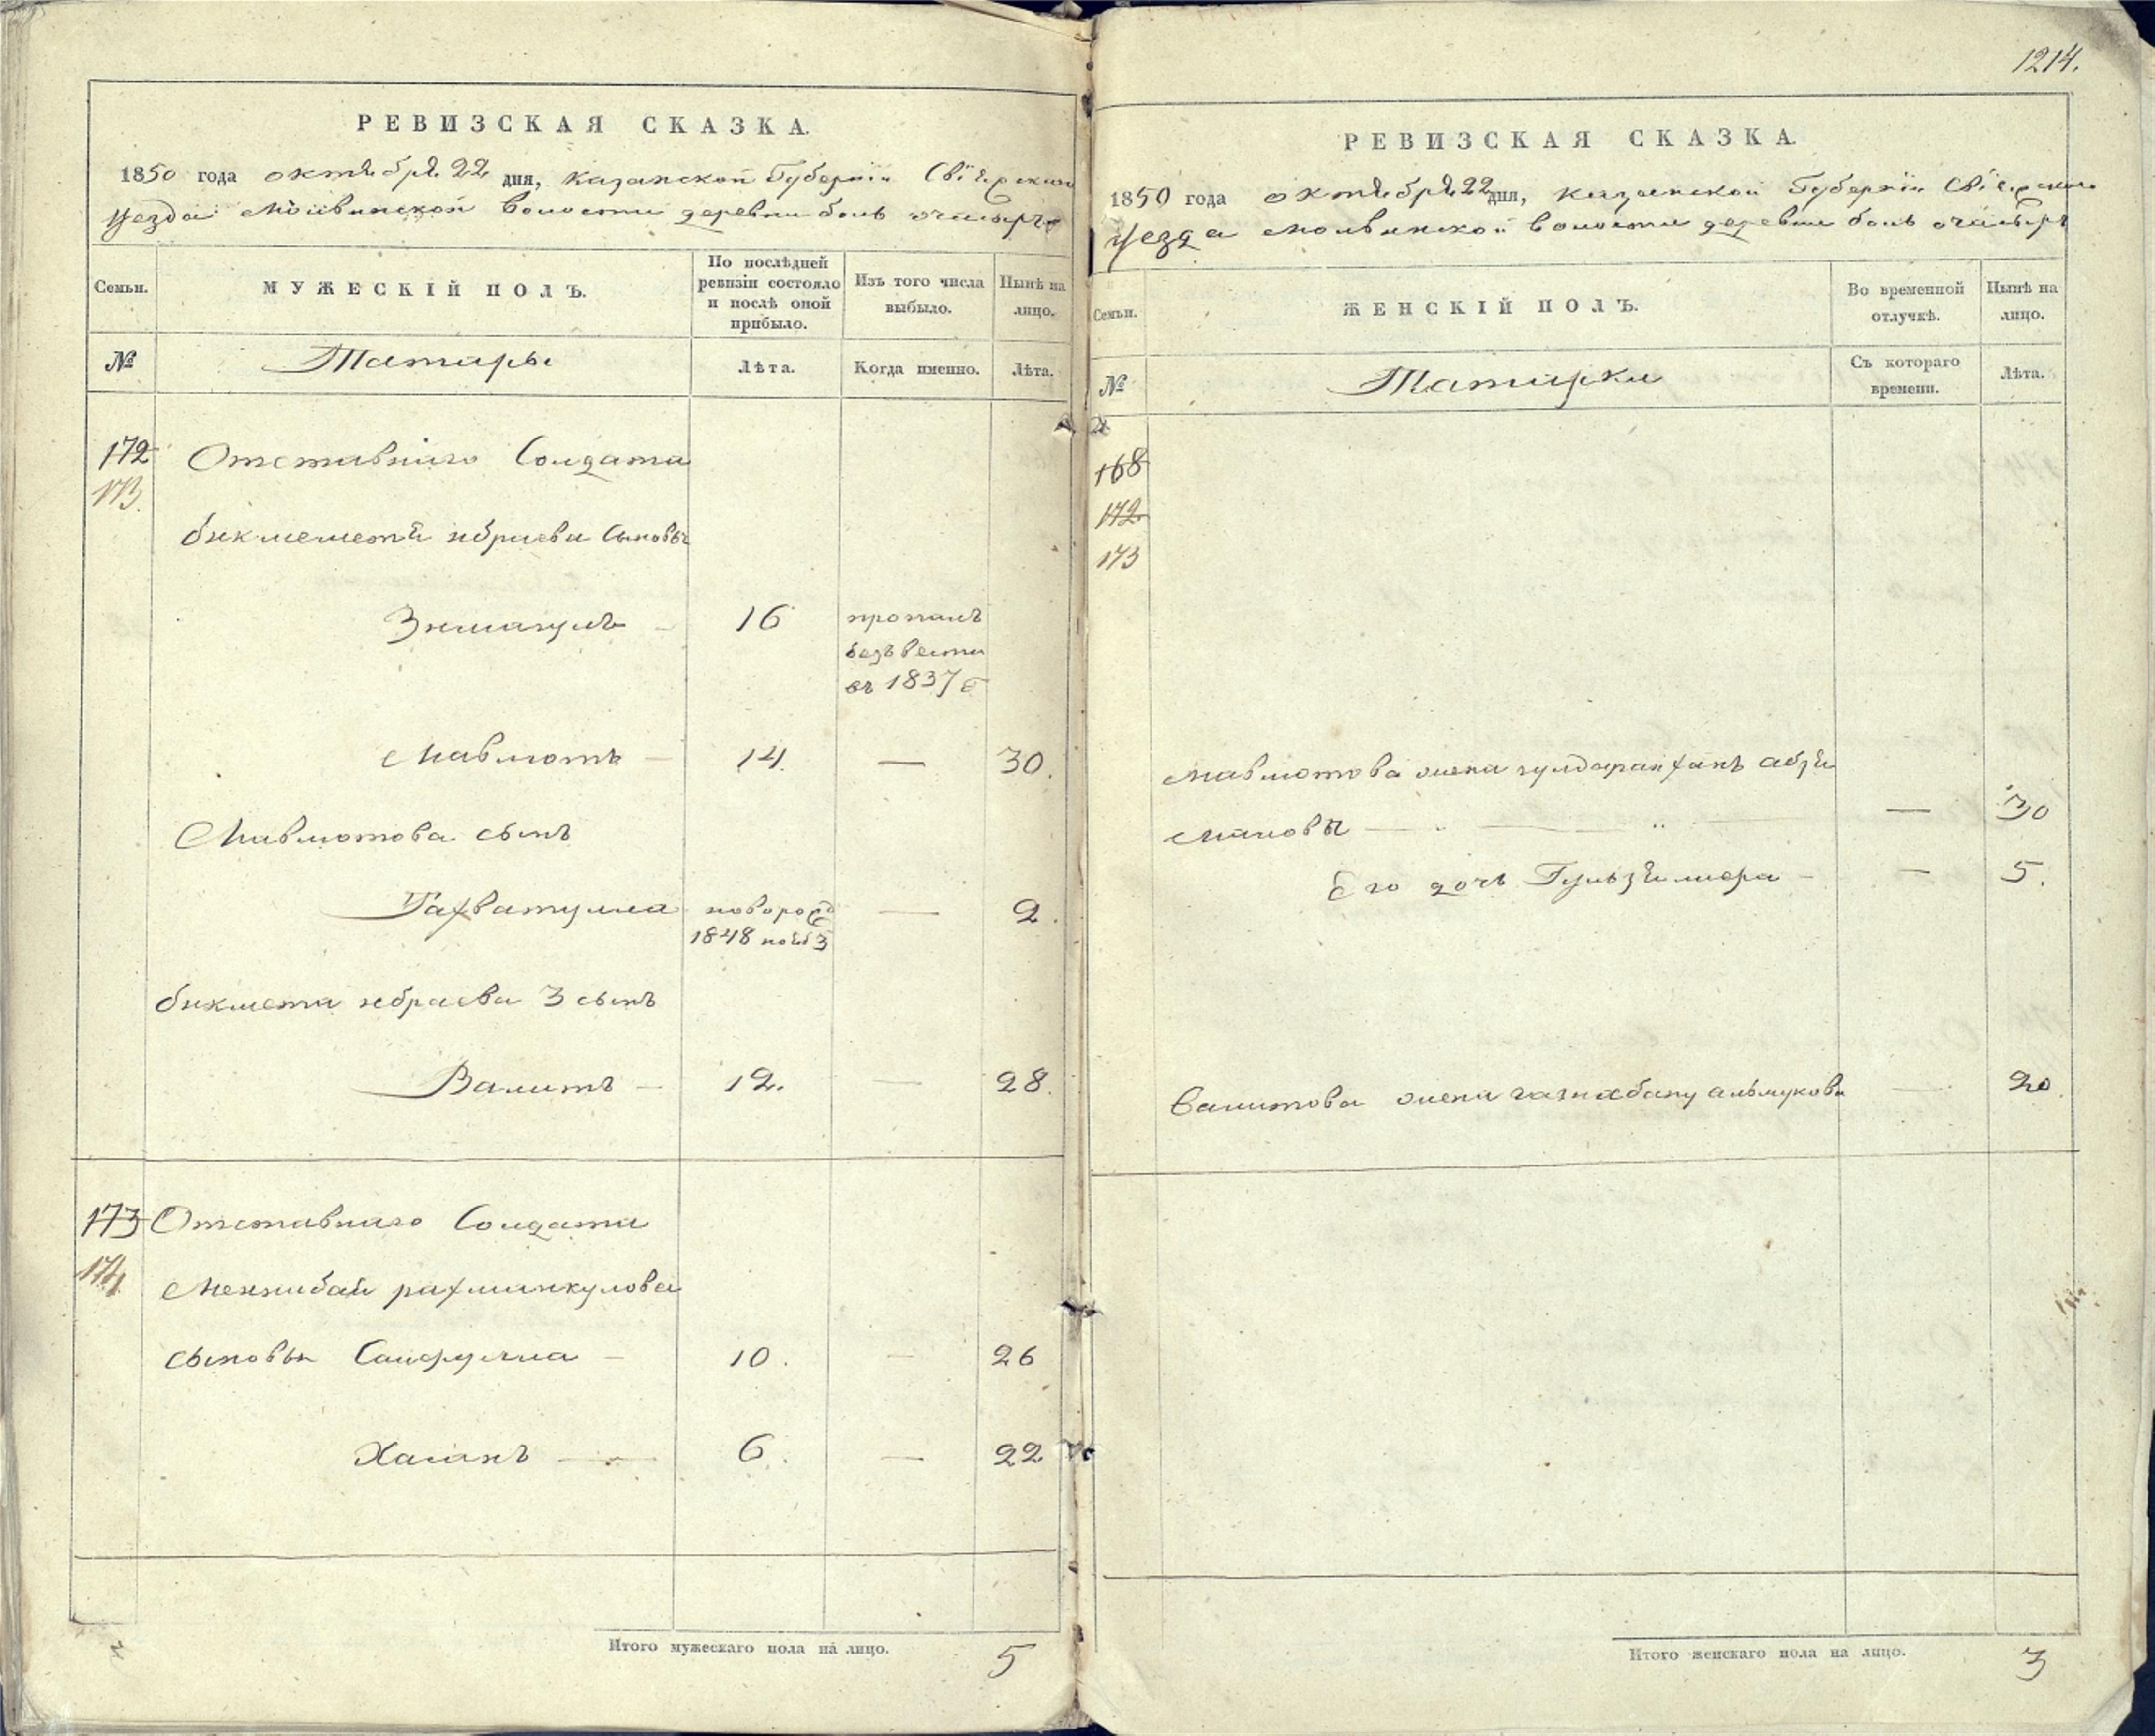 1214.
РЕВИЗСКАЯ СКАЗКА.
1850 года октября 22 дня, Казанской Губернiи Свiяжскаго
уезда Молвинской волости деревни боль очасыръ
Семьи.
МУЖЕСКIЙ ПОЛЪ.
По послѣдней ревизiи состояло и послѣ оной прибыло.
Изъ того числа выбыло.
Нынѣ на лицо.
№
Татары
Лѣта.
Когда именно.
Лѣта.
172 Отставнаго Солдата
173.
бикмеметя ибраева сыновья
16 пропалъ
безъ вести
въ 1837 г
Мавлютъ — 14. — 30.
Мавлютова сынъ
Гафватулла новорож — 2.
1848 нояб 3
бикмета ибраева 3 сынъ
Валитъ — 12. — 28.
173 Отставнаго Солдата
174
Менлибая рахманкулова
сыновья Сайфулла — 10. — 26
Хасанъ — 6. — 22
Итого мужескаго пола на лицо. 5
РЕВИЗСКАЯ СКАЗКА.
1850 года октября 22 дня, Казанской Губернiи Свiяжскаго
уезда Молвинской волости деревни боль очасыръ
Семьи.
ЖЕНСКIЙ ПОЛЪ.
Во временной отлучкѣ.
Нынѣ на лицо.
№
Татарки
Съ котораго времени.
Лѣта.
168
172
173
Мавлютова жена
— 30
Его дочь — 5.
Валитова жена — 20.
Итого женскаго пола на лицо. 3